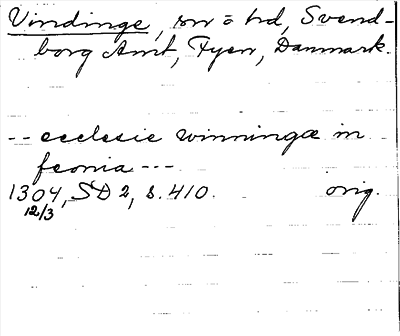 Vindinge, sn o hd, Svend-
borg Amt, Fyen, Danmark.
-- ecclesie winningæ in
feonia ---
1304, SD 2, s. 410. orig.
12/3